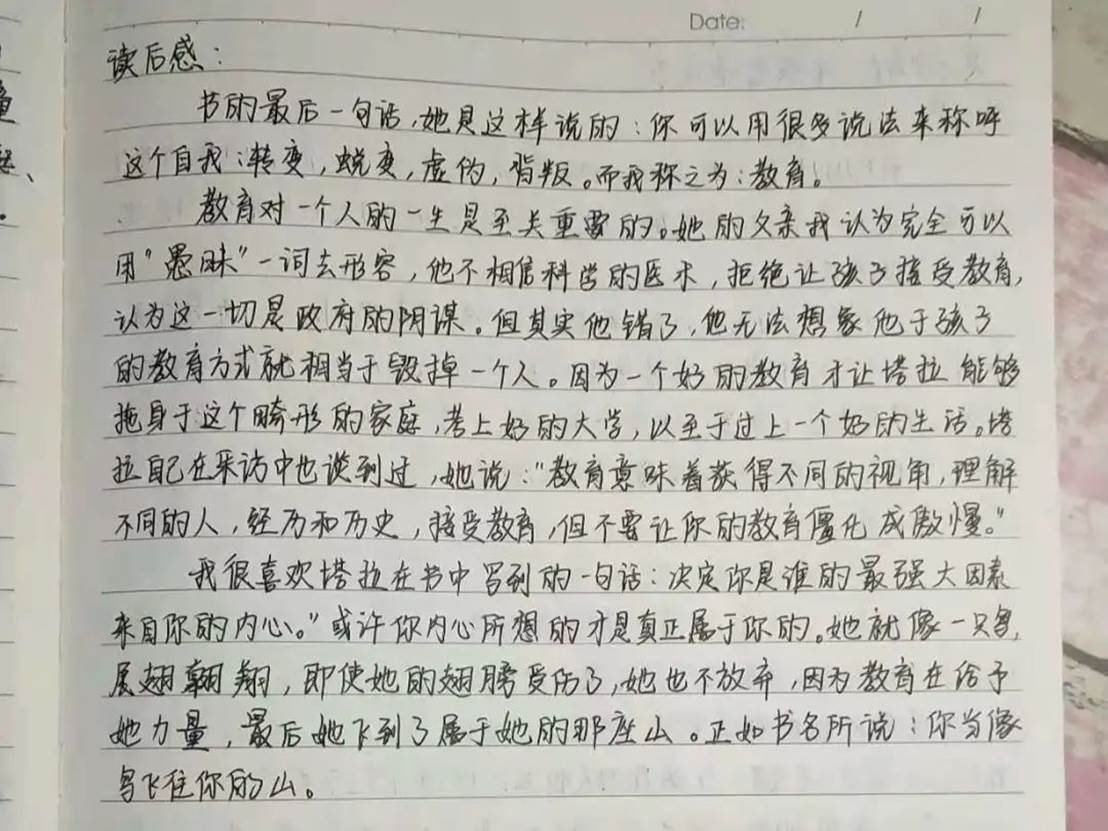 Date: / /
读后感：
书的最后一句话，她是这样说的：你可以用很多说法来称呼
这个自我：转变，蜕变，虚伪，背叛。而我称之为：教育。
教育对一个人的一生是至关重要的。她的父亲我认为完全可以
用"愚昧"一词去形容，他不相信科学的医术，拒绝让孩子接受教育，
认为这一切是政府的阴谋。但其实他错了，他无法想象他于孩子
的教育方式就相当于毁掉一个人。因为一个好的教育才让塔拉能够
拖身于这个畸形的家庭，考上好的大学，以至于过上一个好的生活。塔
拉自己在采访中也谈到过，她说："教育意味着获得不同的视角，理解
不同的人，经历和历史，接受教育，但不要让你的教育僵化成傲慢。"
我很喜欢塔拉在书中写到的一句话：决定你是谁的最强大因素
来自你的内心。"或许你内心所想的才是真正属于你的。她就像一只鸟，
展翅翱翔，即使她的翅膀受伤了，她也不放弃，因为教育在给予
她力量，最后她飞到了属于她的那座山。正如书名所说：你当像
鸟飞往你的山。